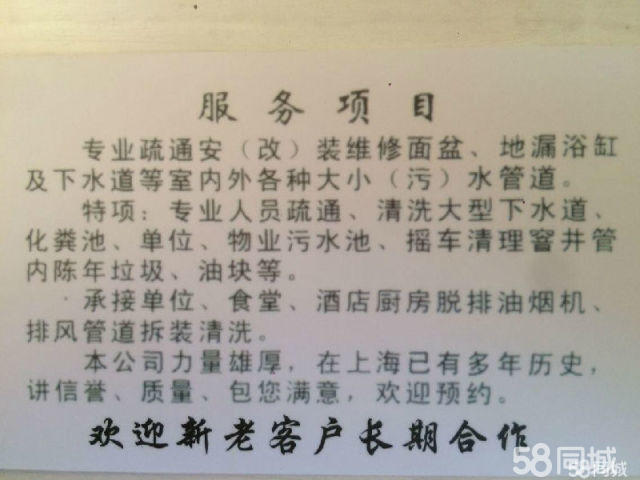 服务项目
专业疏通安（改）装维修面盆、地漏浴缸
及下水道等室内外各种大小（污）水管道。
特项：专业人员疏通、清洗大型下水道、
化粪池、单位、物业污水池、摇车清理窨井管
内陈年垃圾、油块等。
承接单位、食堂、酒店厨房脱排油烟机、
排风管道拆装清洗。
本公司力量雄厚，在上海已有多年历史，
讲信誉、质量、包您满意，欢迎预约。
欢迎新老客户长期合作
58同城
58同城